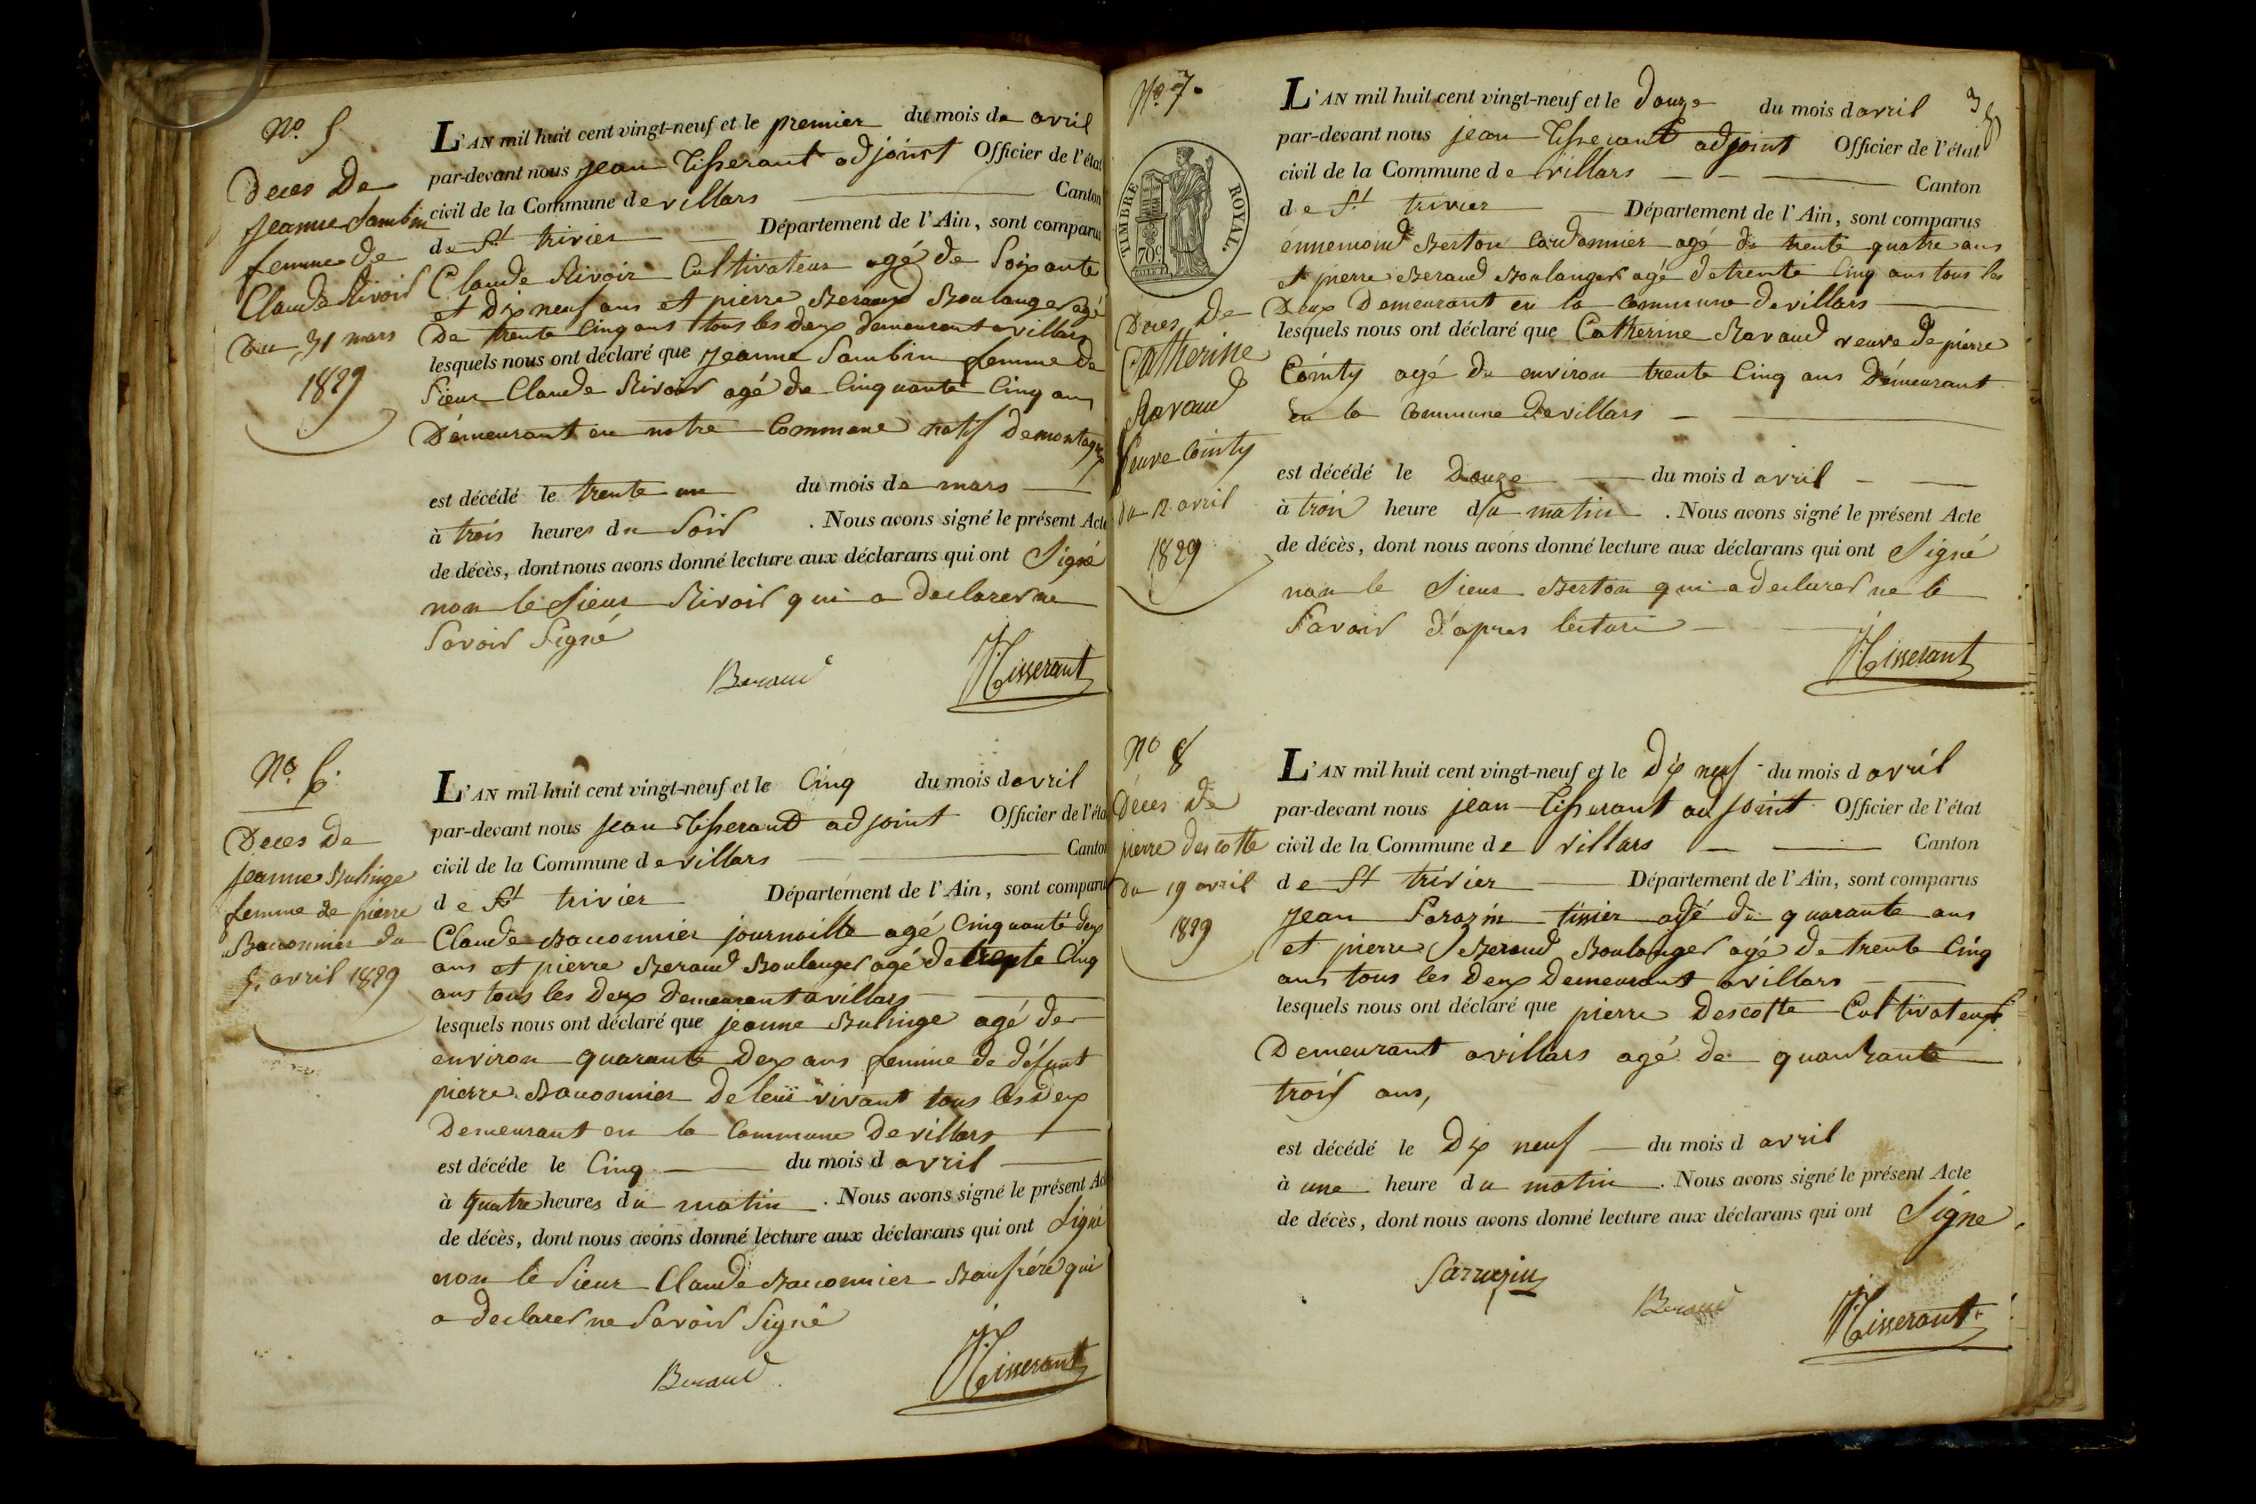 No. 5
Deces De
Jeanne Sambin
femme de
Claude Rivoir
Du 31 mars
1829
L'AN mil huit cent vingt-neuf et le premier du mois de avril
par-devant nous jean tisserant adjoint Officier de l'état
civil de la Commune de villars Canton
de St trivier Département de l'Ain, sont comparus
Claude Rivoir Cultivateur agé de Soixante
et Dix neuf ans et pierre Beraud Boulanger agé
De trente Cinq ans tous les deux demeurant a villars
lesquels nous ont déclaré que jeanne Sambin femme de
Sieur Claude Rivoir agé de Cinquante Cinq ans
Demeurant en notre Commune natif De
est décédé le trente un du mois de mars
à trois heures du Soir . Nous avons signé le présent Acte
de décès, dont nous avons donné lecture aux déclarans qui ont Signé
non le Sieur Rivoir qui a declarer ne
Savoir Signé
Beraud
J. Tisserant
No. 6.
Deces De
jeanne Bulinge
femme de pierre
Baconnier du
5. avril 1829
L'AN mil huit cent vingt-neuf et le Cinq du mois d avril
par-devant nous jean tisserant adjoint Officier de l'état
civil de la Commune de villars Canton
de St trivier Département de l'Ain, sont comparus
Claude Baconnier journaille agé Cinquante deux
ans et pierre Beraud Boulanger agé de trente Cinq
ans tous les deux demeurant a villars
lesquels nous ont déclaré que jeanne Bulinge agé de
environ quarante Deux ans femme de défunt
pierre Baconnier De vivant tous les deux
Demeurant en la Commune De villars
est décéde le Cinq du mois d avril
à quatre heures du matin . Nous avons signé le présent Acte
de décès, dont nous avons donné lecture aux déclarans qui ont Signé
non le Sieur Claude Baconnier Baufrére qui
a declarer ne Savoir Signé
Beraud
J. Tisserant
No. 7.
TIMBRE ROYAL.
70c
Deces De
Catherine
Ravaud
veuve Cointy
du 12 avril
1829
L'AN mil huit cent vingt-neuf et le douze du mois d avril
par-devant nous jean tisserant adjoint Officier de l'état
civil de la Commune de villars Canton
de St trivier Département de l'Ain, sont comparus
ennemond Berton Cordonnier agé de trente quatre ans
et pierre Beraud Boulanger agé de trente Cinq ans tous les
Deux Demeurant en la commune de villars
lesquels nous ont déclaré que Catherine Ravaud veuve de pierre
Cointy agé de environ trente Cinq ans Démeurant
en la Commune de villars
est décédé le Douze du mois d avril
à trois heure du matin . Nous avons signé le présent Acte
de décès, dont nous avons donné lecture aux déclarans qui ont Signé
non le Sieur Berton qui a declarer ne le
Savoir d'apres lecture
J. Tisserant
No 8
Déces De
pierre descotte
du 19 avril
1829
L'AN mil huit cent vingt-neuf et le Dix neuf du mois d avril
par-devant nous jean tisserant adjoint Officier de l'état
civil de la Commune de villars Canton
de St trivier Département de l'Ain, sont comparus
jean Sarazin tissier agé de quarante ans
et pierre Beraud Boulanger agé de trente Cinq
ans tous les Deux Demeurant a villars
lesquels nous ont déclaré que pierre Descotte Cultivateur
Demeurant a villars agé de quanrante
trois ans,
est décédé le Dix neuf du mois d avril
à une heure du matin . Nous avons signé le présent Acte
de décès, dont nous avons donné lecture aux déclarans qui ont Signe
Sarrazin
Beraud
J. Tisserant